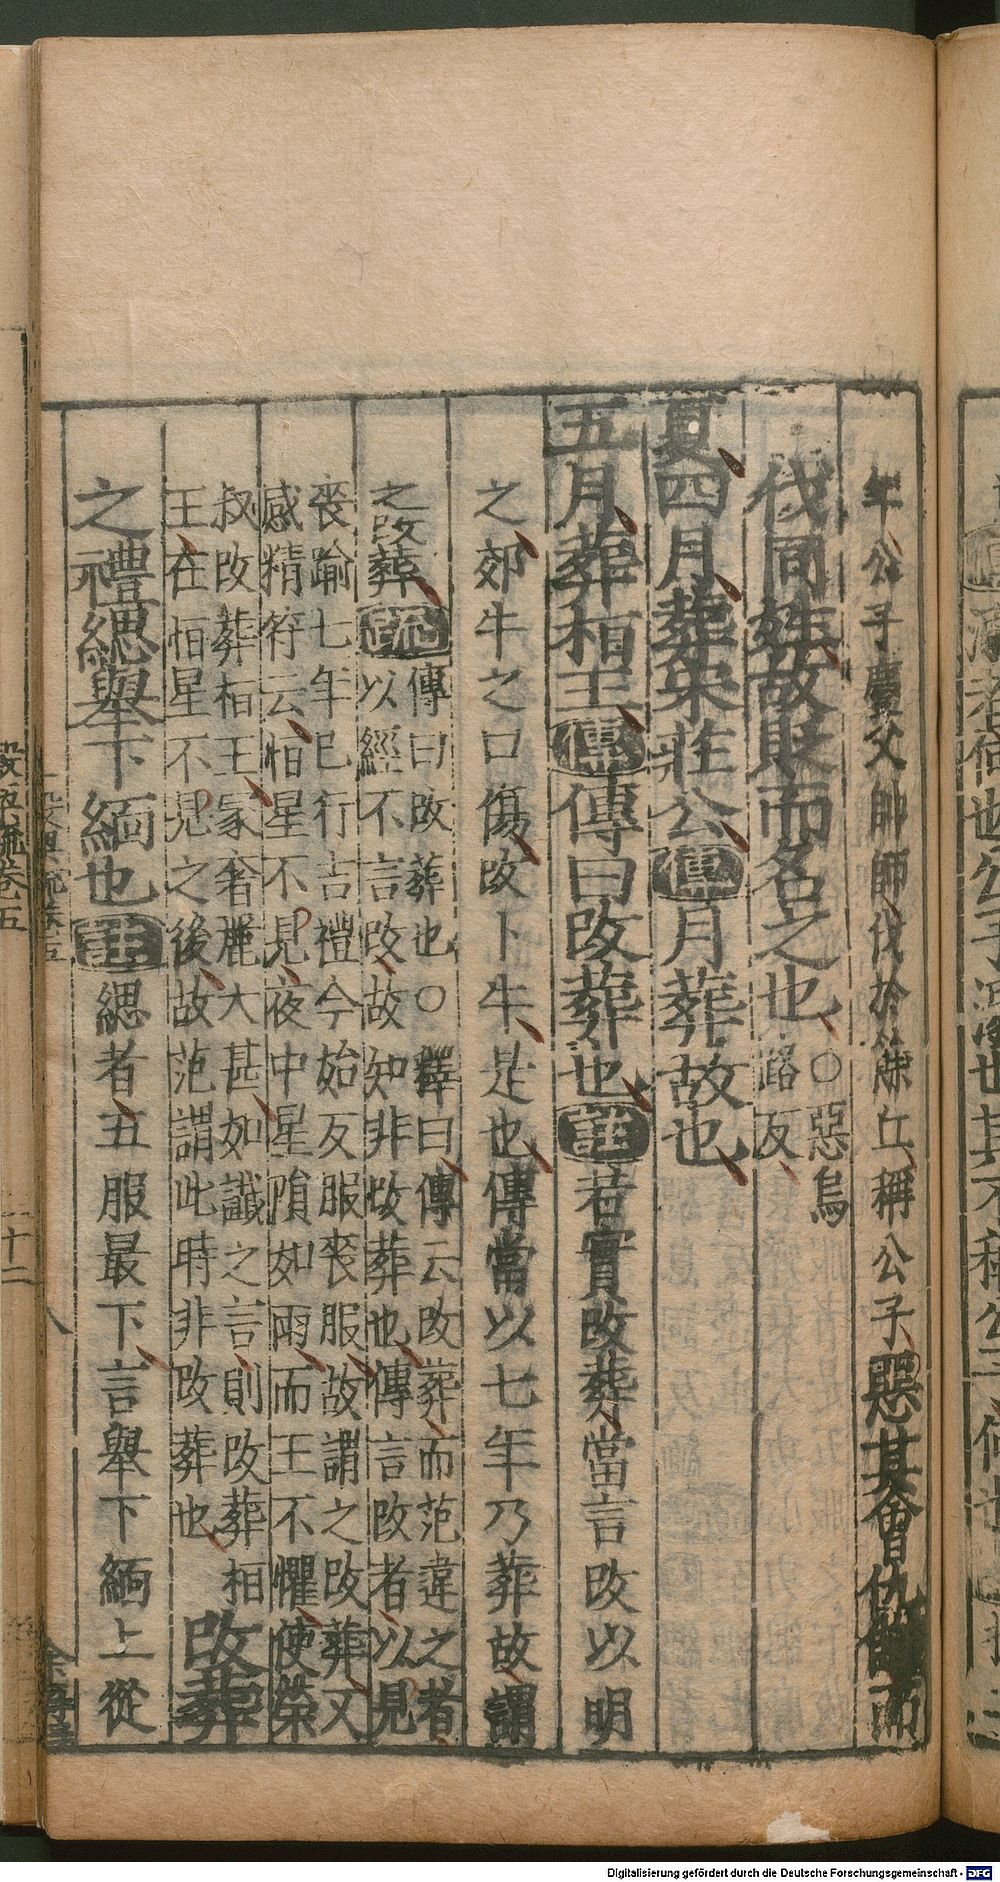 年公子慶父帥師伐於餘丘稱公子惡其會仇讎而
伐同姓故貶而名之也○惡烏
路反
夏四月葬宋莊公傳月葬故也
五月葬桓王傳傳曰改葬也註若實改葬當言改以明
之郊牛之口傷改卜牛是也傳當以七年乃葬故謂
之改葬疏傳曰改葬也○釋曰傳云改葬而范違之者
以經不言改故知非改葬也傳言改者以見
喪踰七年已行吉禮今始反服喪服故謂之改葬又
感精符云恒星不見夜中星隕如雨而王不懼使榮
叔改葬桓王冢奢麗大甚如讖之言則改葬桓
王在恒星不見之後故范謂此時非改葬也改葬
之禮緦舉下緬也註緦者五服最下言舉下緬上從
穀梁疏卷五
十二
Digitalisierung gefördert durch die Deutsche Forschungsgemeinschaft - DFG